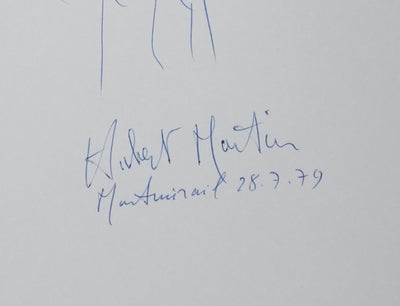 Hubert Martin
Montmirail 28.7.79